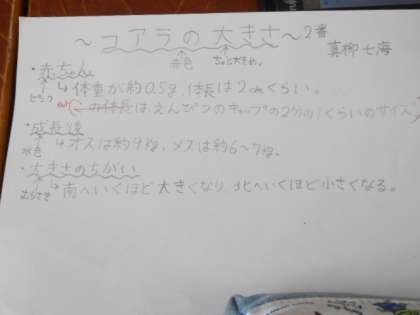 ～コアラの大きさ～2番
真柳七海
赤色
ちょっと大きめ。
・赤ちゃん
↳体重が約0.5g、体長は2cmくらい。
この体長は、えんぴつのキャップの2分の1くらいのサイズ
・成長後
水色
↳オスは約9kg、メスは約6～7kg。
・大きさのちがい
むらさき
↳南へいくほど大きくなり、北へいくほど小さくなる。